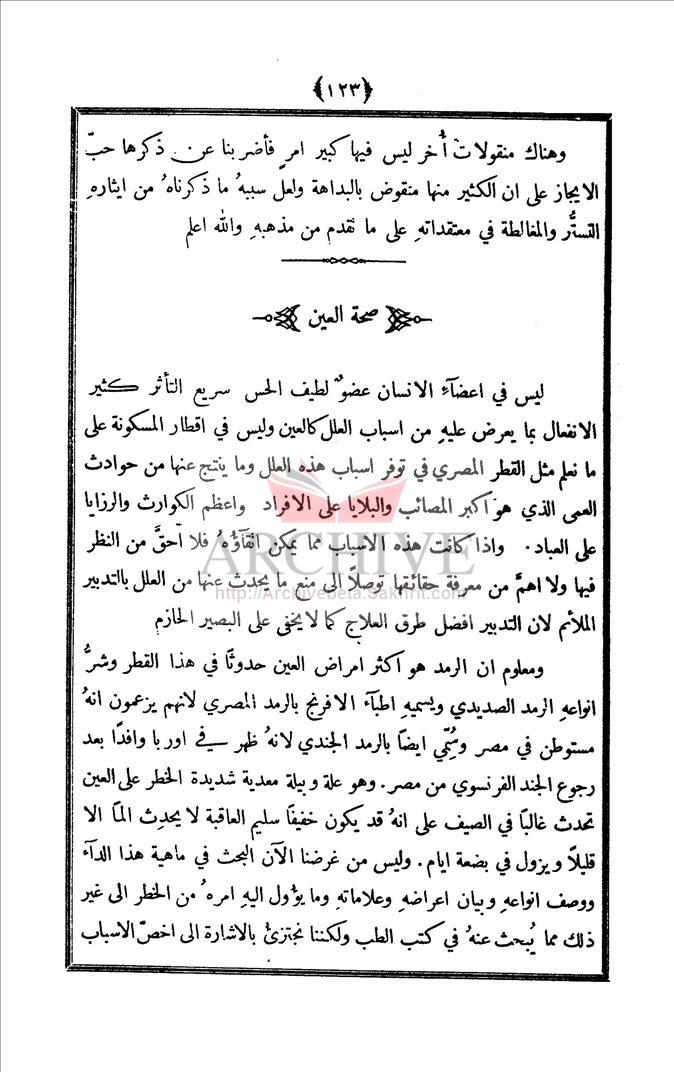 ﴿١٢٣﴾
وهناك منقولات أُخر ليس فيها كبير امرٍ فأضربنا عن ذكرها حبّ
الايجاز على ان الكثير منها منقوض بالبداهة ولعل سببهُ ما ذكرناهُ من ايثارهِ
التستُّر والمغالطة في معتقداتهِ على ما نقدم من مذهبهِ والله اعلم
صحة العين
ليس في اعضآءِ الانسان عضوٌ لطيف الحس سريع التأثر كثير
الانفعال بما يعرض عليهِ من اسباب العلل كالعين وليس في اقطار المسكونة على
ما نعلم مثل القطر المصري في توفر اسباب هذه العلل وما ينتج عنها من حوادث
العمى الذي هو اكبر المصائب والبلايا على الافراد واعظم الكوارث والرزايا
على العباد. واذا كانت هذه الاسباب مما يمكن اتقآؤُهُ فلا احقَّ من النظر
فيها ولا اهمَّ من معرفة حقائقها توصلاً الى منع ما يحدث عنها من العلل بالتدبير
الملائم لان التدبير افضل طرق العلاج كما لا يخفى على البصير الحازم
ومعلوم ان الرمد هو اكثر امراض العين حدوثًا في هذا القطر وشرُّ
انواعهِ الرمد الصديدي ويسميهِ اطبآء الافرنج بالرمد المصري لانهم يزعمون انهُ
مستوطن في مصر وسُمّي ايضًا بالرمد الجندي لانهُ ظهر في اوربا وافدًا بعد
رجوع الجند الفرنسوي من مصر. وهو علة وبيلة معدية شديدة الخطر على العين
تحدث غالبًا في الصيف على انهُ قد يكون خفيفًا سليم العاقبة لا يحدث المًا الا
قليلاً ويزول في بضعة ايام. وليس من غرضنا الآن البحث في ماهية هذا الدآء
ووصف انواعهِ وبيان اعراضهِ وعلاماتهِ وما يؤول اليهِ امرهُ من الخطر الى غير
ذلك مما يُبحث عنهُ في كتب الطب ولكننا نجتزئ بالاشارة الى اخصّ الاسباب
ARCHIVE
http://Archivebeta.Sakhrit.com